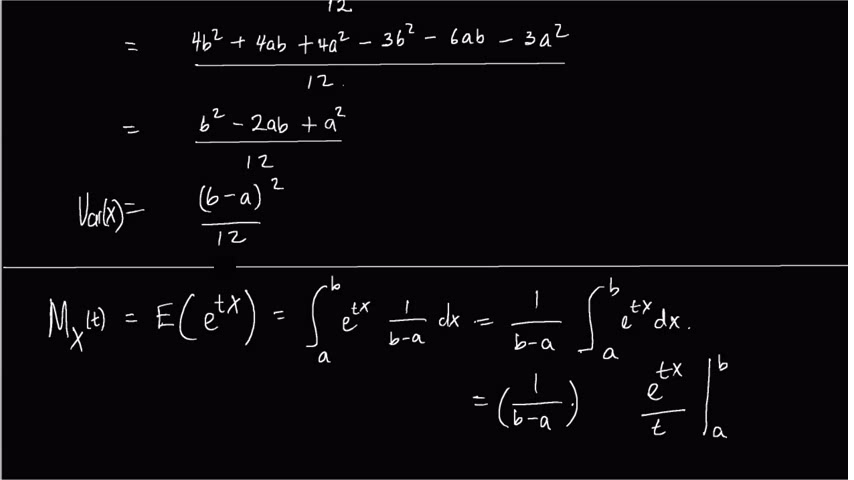 12
= (4b² + 4ab + 4a² - 3b² - 6ab - 3a²) / 12.
= (b² - 2ab + a²) / 12
Var(x) = (b-a)² / 12
M_X(t) = E(e^{tX}) = ∫_a^b e^{tx} 1/(b-a) dx = 1/(b-a) ∫_a^b e^{tx} dx.
= (1/(b-a)) e^{tx}/t |_a^b